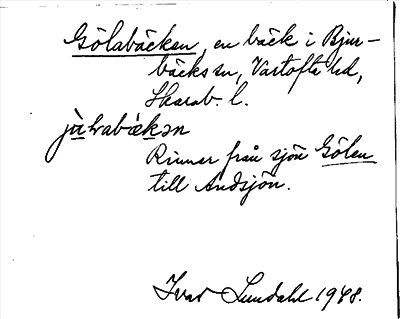 Gölabäcken, en bäck i Bjur-
bäcks sn, Vartofta hd,
Skarab. l.
Rinner från sjön Gölen
till Andsjön.
Ivar Lundahl 1948.